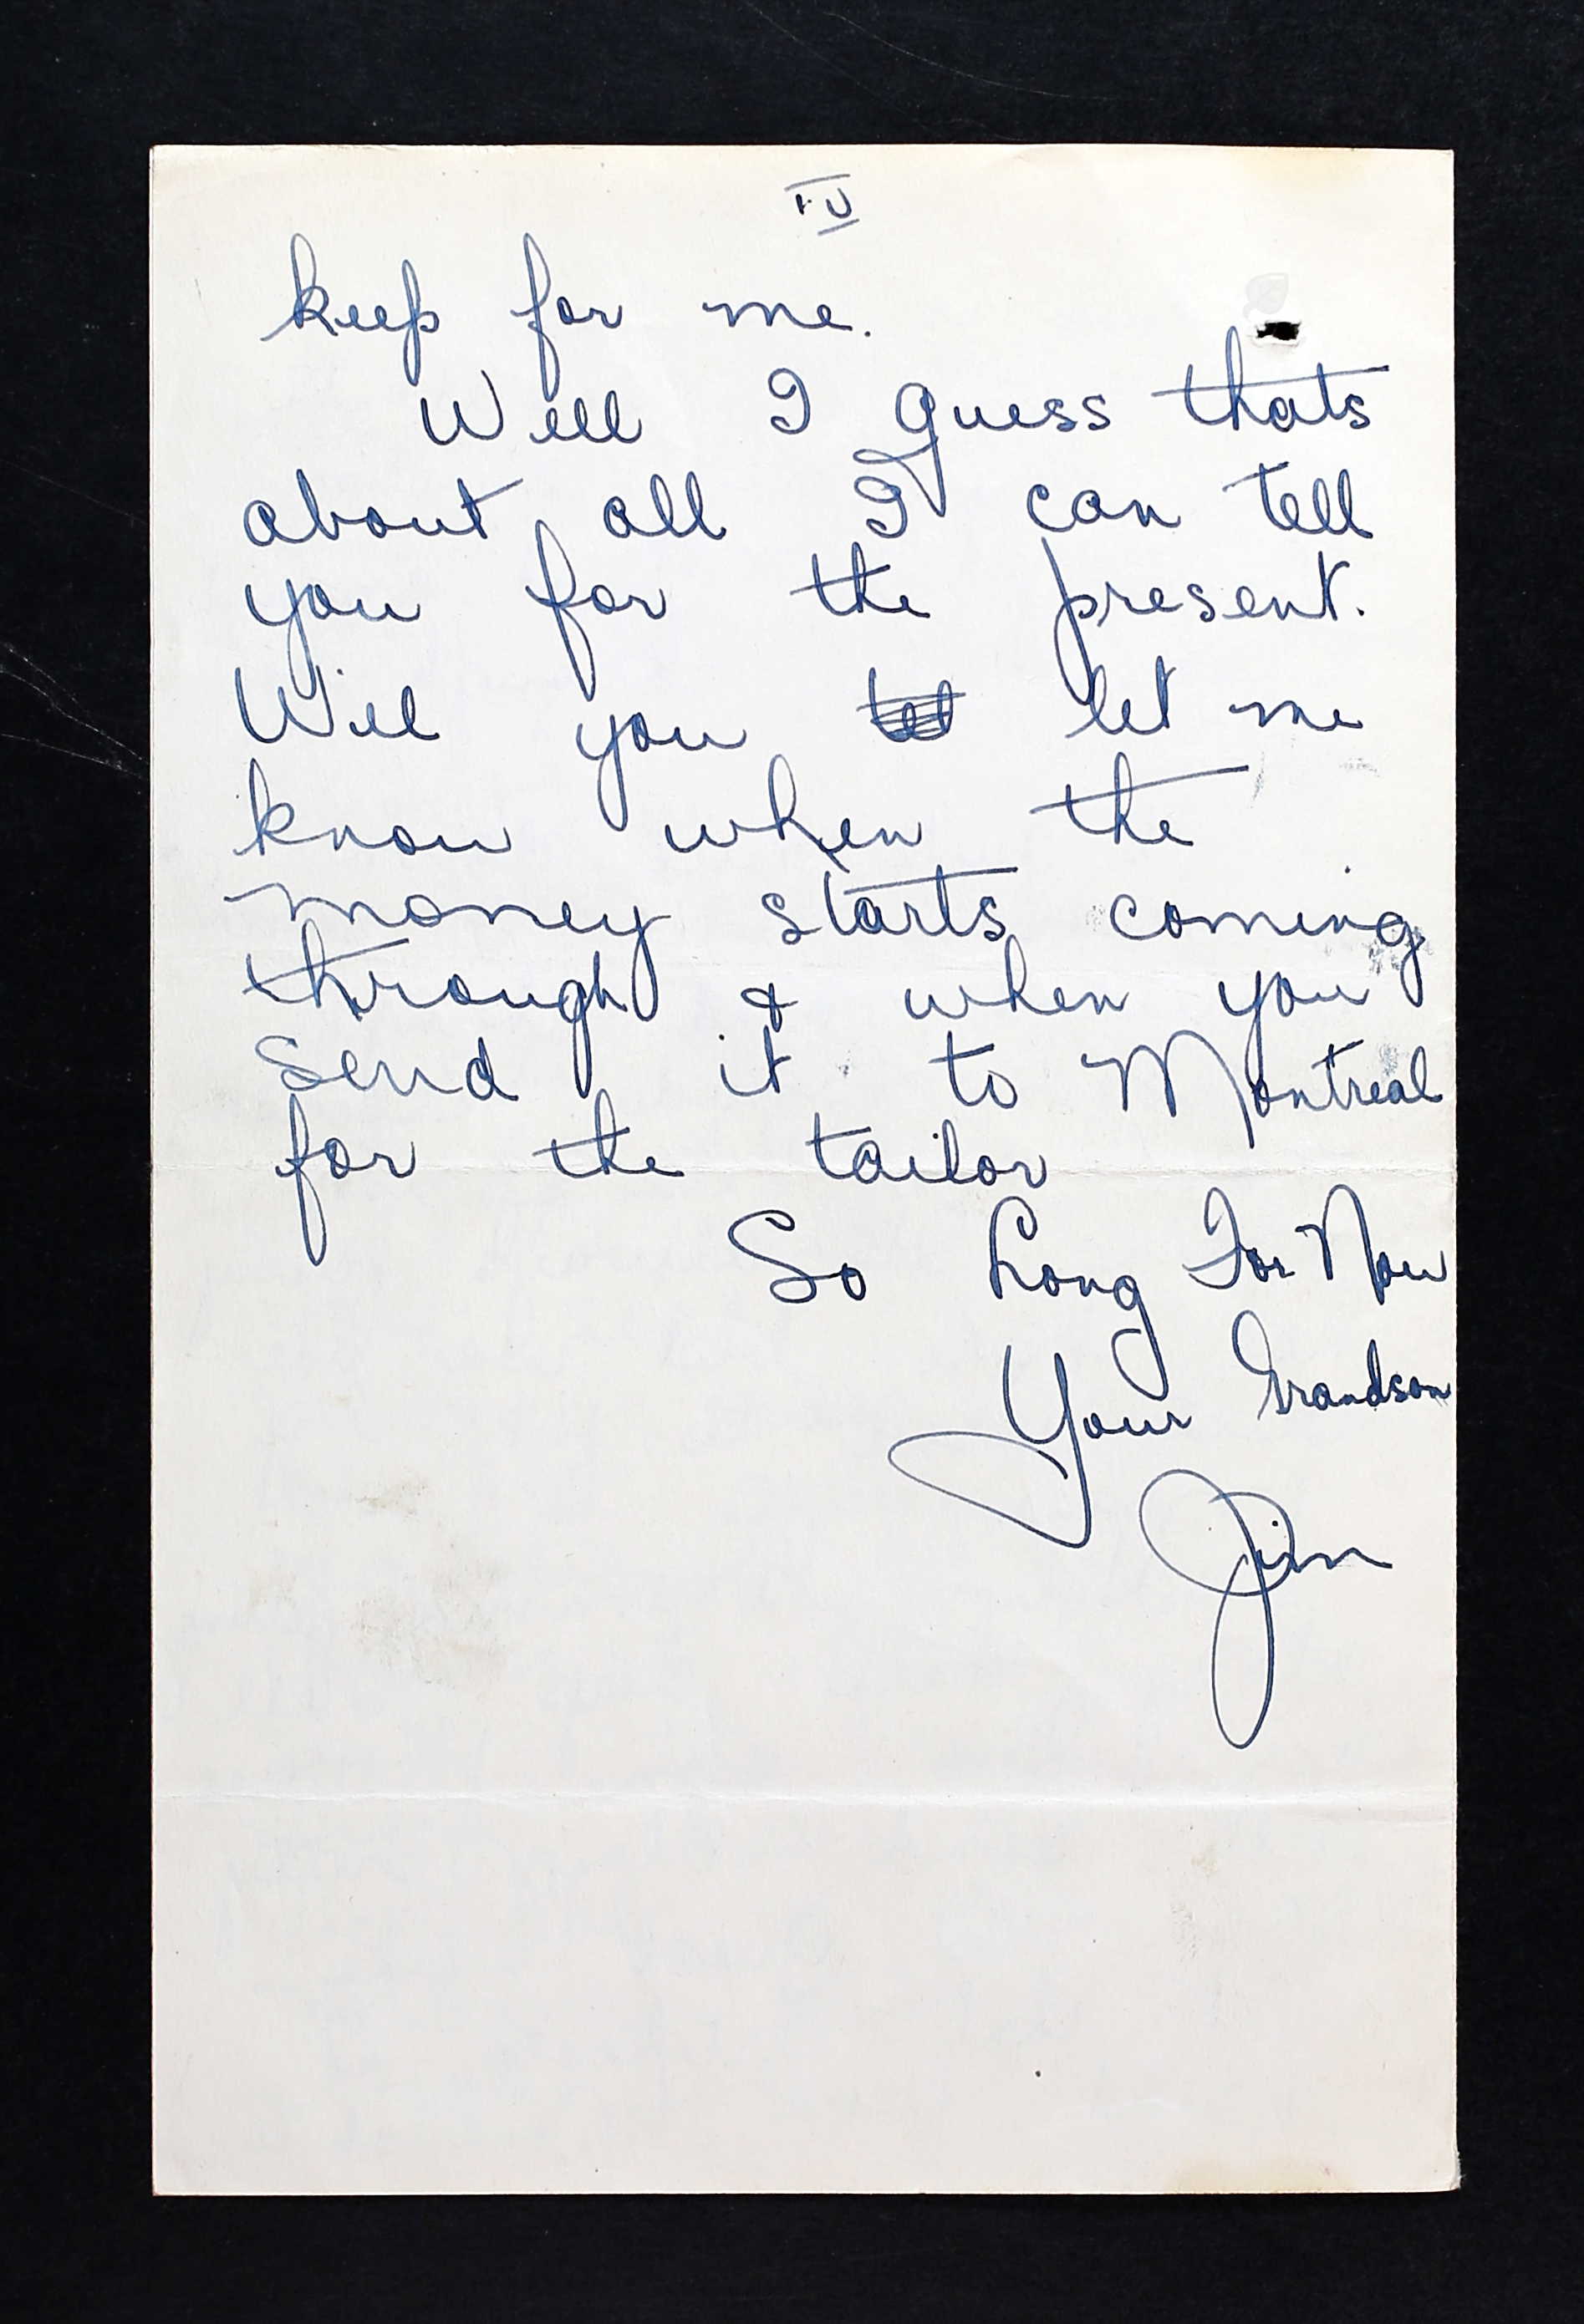 IV
keep for me.
Well I guess thats
about all I can tell
you for the present.
Will you let me
know when the
money starts coming
through & when you
send it to Montreal
for the tailor
So Long For Now
Your Grandson
Jim